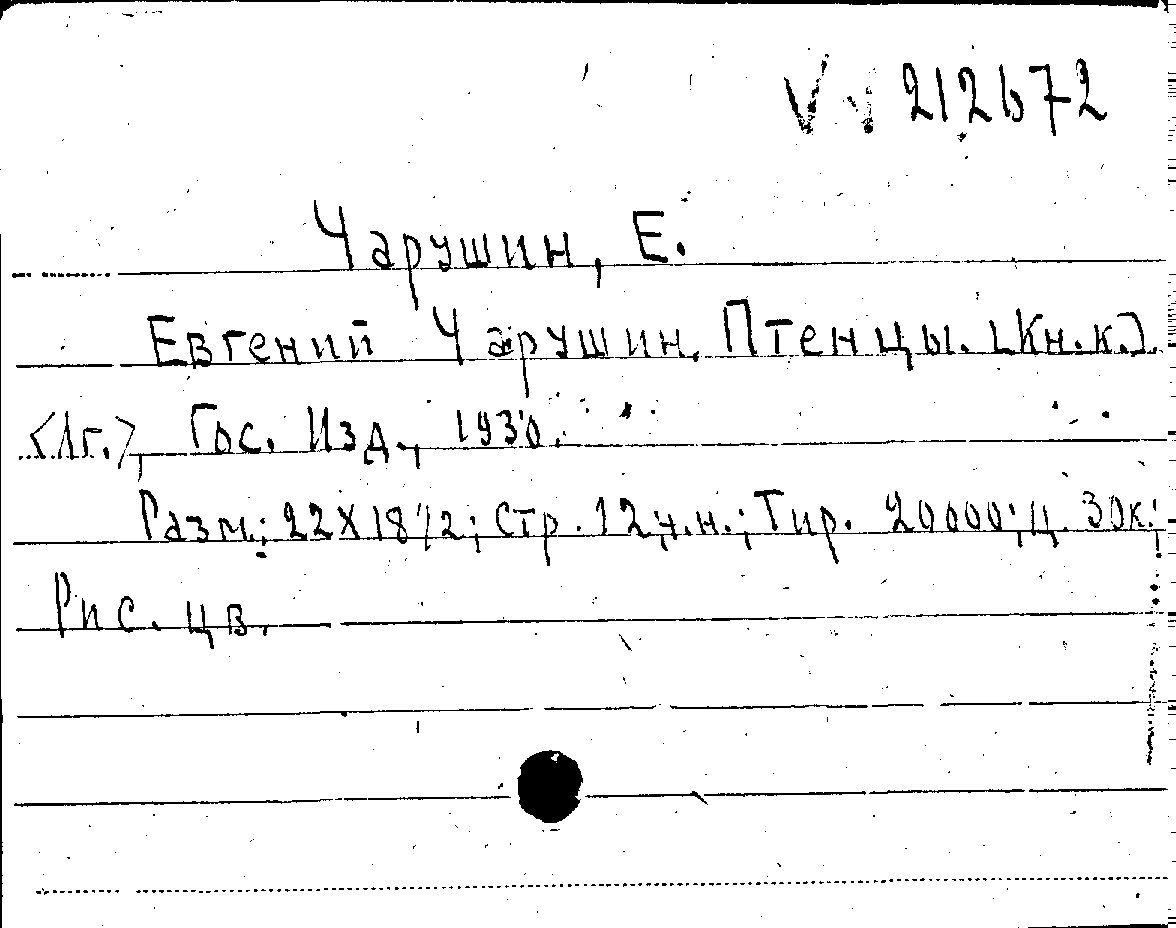 VV 212672
Чарушин, Е.
Евгений Чарушин. Птенцы. [Кн.к.].
<Лг.>, Гос. Изд., 1930.
Разм.: 22X18 1/2; Стр. 12 н.н.; Тир. 20000; Ц. 30к.;
Рис. цв.